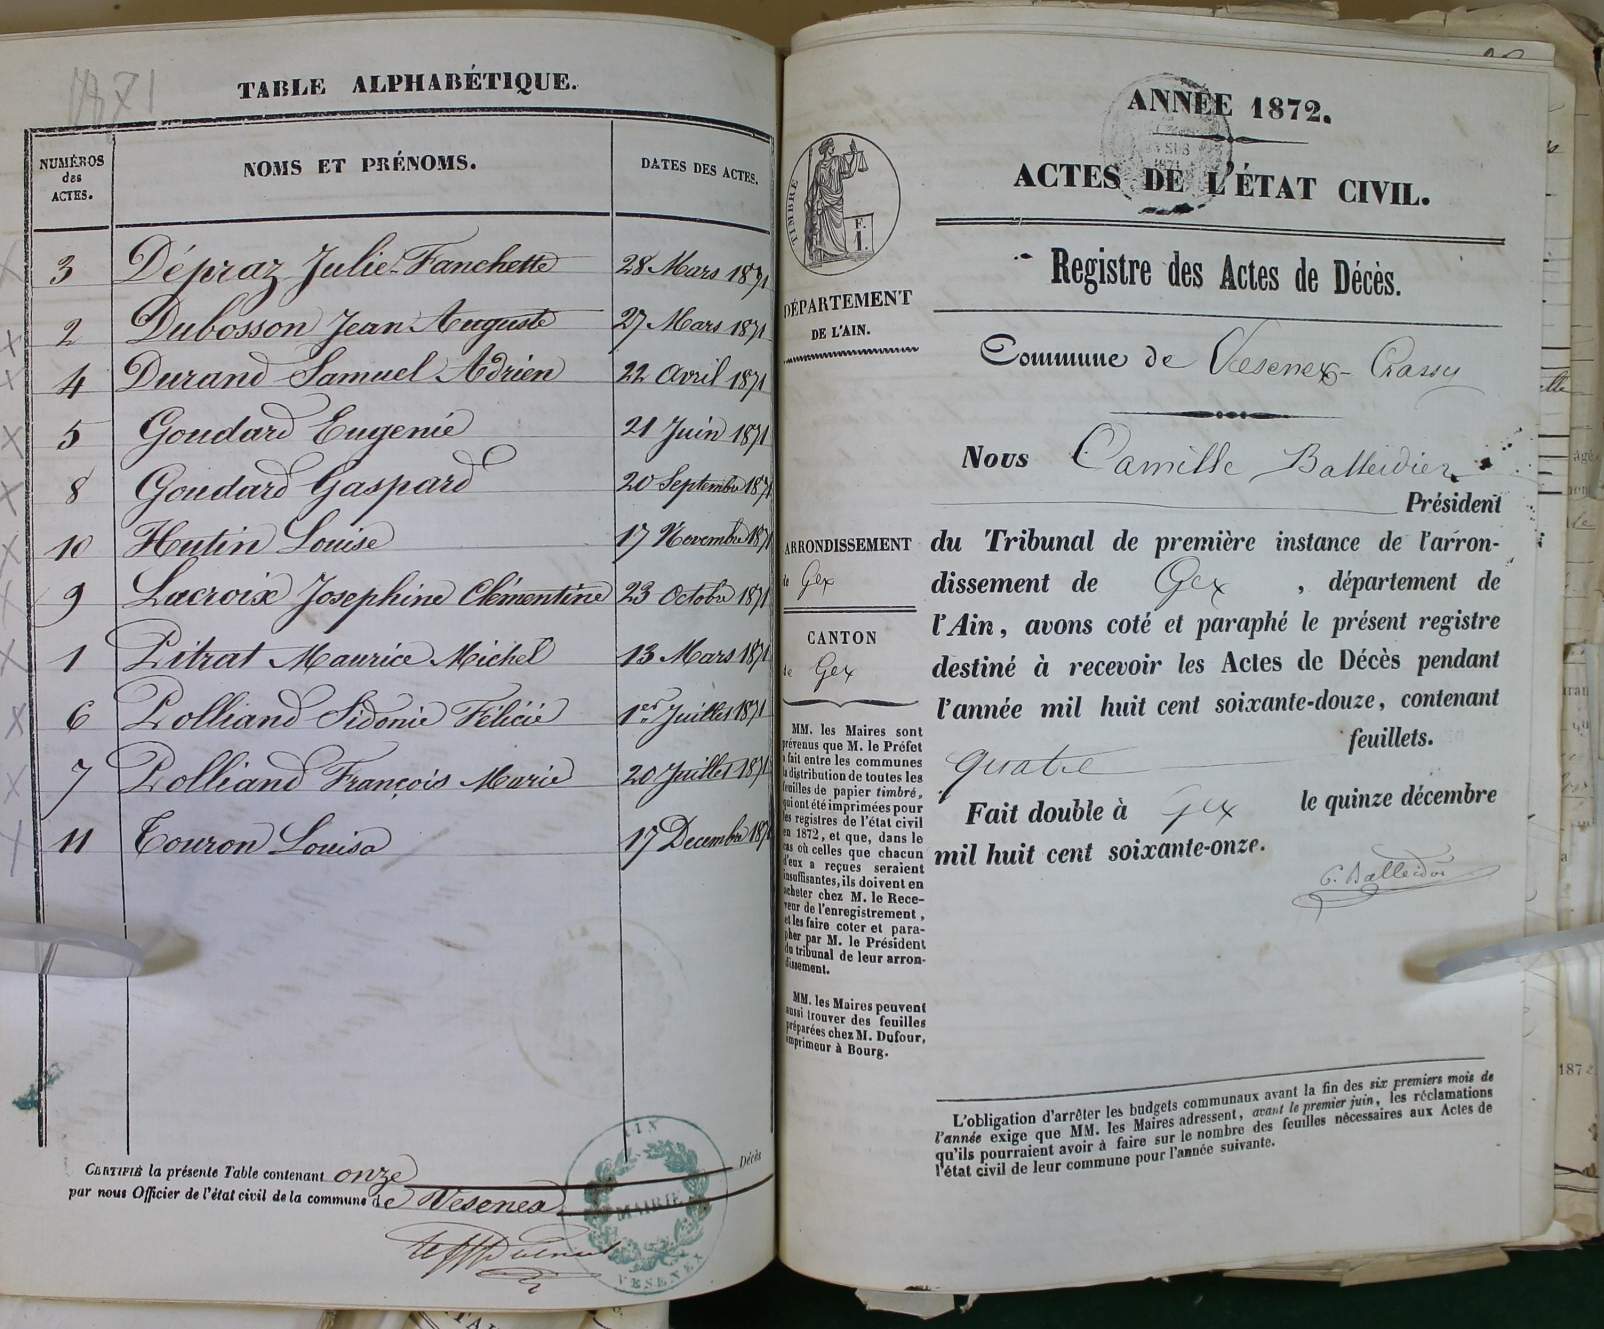 1871
TABLE ALPHABÉTIQUE.
NUMÉROS
des
ACTES.
NOMS ET PRÉNOMS.
DATES DES ACTES.
3 Dépraz Julie-Fanchette 28 Mars 1871
2 Dubosson Jean Auguste 27 Mars 1871
4 Durand Samuel Adrien 22 Avril 1871
5 Goudard Eugenie 21 Juin 1871
8 Goudard Gaspard 20 Septembre 1871
10 Hutin Louise 17 Novembre 1871
9 Lacroix Josephine Clémentine 23 Octobre 1871
1 Pitrat Maurice Michel 13 Mars 1871
6 Polliand Sidonie Félicie 1er Juillet 1871
7 Polliand François Marie 20 Juillet 1871
11 Touron Louisa 17 Decembre 1871
CERTIFIÉ la présente Table contenant onze Décès
par nous Officier de l'état civil de la commune de Vesenex
AIN
MAIRIE
VESENEX
ANNÉE 1872.
ACTES DE L'ÉTAT CIVIL.
TIMBRE
F.
1.
Registre des Actes de Décès.
DÉPARTEMENT
DE L'AIN.
Commune de Vesenex-Crassy
Nous Camille Balleidier
Président
du Tribunal de première instance de l'arron-
dissement de Gex, département de
l'Ain, avons coté et paraphé le présent registre
destiné à recevoir les Actes de Décès pendant
l'année mil huit cent soixante-douze, contenant
quatre feuillets.
Fait double à Gex le quinze décembre
mil huit cent soixante-onze.
C. Balleidier
ARRONDISSEMENT
de Gex
CANTON
de Gex
MM. les Maires sont
prévenus que M. le Préfet
a fait entre les communes
la distribution de toutes les
feuilles de papier timbré,
qui ont été imprimées pour
les registres de l'état civil
en 1872, et que, dans le
cas où celles que chacun
d'eux a reçues seraient
insuffisantes, ils doivent en
acheter chez M. le Rece-
veur de l'enregistrement,
et les faire coter et para-
pher par M. le Président
du tribunal de leur arron-
dissement.
MM. les Maires peuvent
aussi trouver des feuilles
préparées chez M. Dufour,
imprimeur à Bourg.
L'obligation d'arrêter les budgets communaux avant la fin des six premiers mois de
l'année exige que MM. les Maires adressent, avant le premier juin, les réclamations
qu'ils pourraient avoir à faire sur le nombre des feuilles nécessaires aux Actes de
l'état civil de leur commune pour l'année suivante.